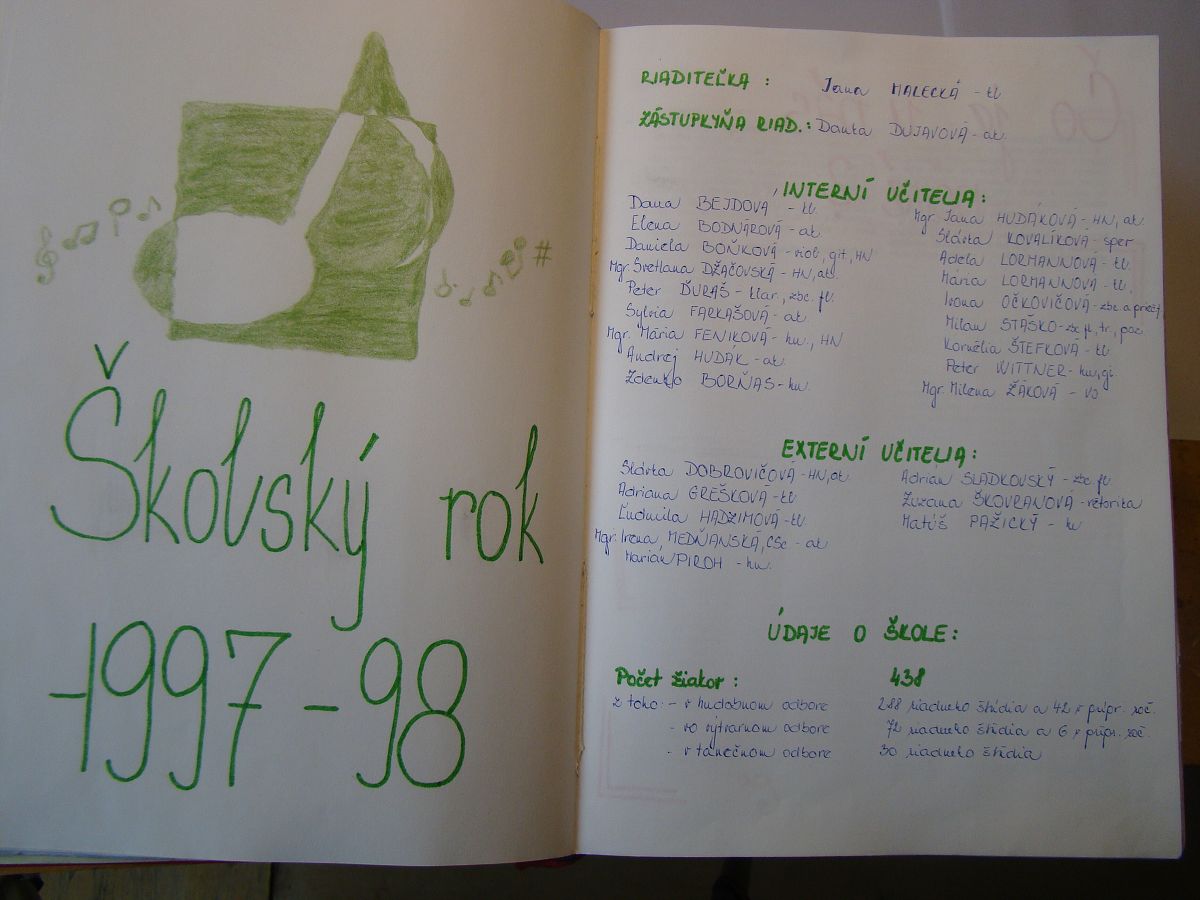 Školský rok
1997-98
RIADITEĽKA : Jana MALECKÁ - kl.
ZÁSTUPKYŇA RIAD.: Danka DUJAVOVÁ - ak.
INTERNÍ UČITELIA:
Dana BEJDOVÁ - kl.
Elena BODNÁROVÁ - ak.
Daniela BOŇKOVÁ - viol, git, HN
Mgr. Svetlana DŽAČOVSKÁ - HN, ak.
Peter ĎURAŠ - klar., zbc. fl.
Sylvia FARKAŠOVÁ - ak.
Mgr. Mária FENIKOVÁ - hu., HN
Andrej HUDÁK - ak.
Zdenko BORŇAS - hu.
Mgr. Jana HUDÁKOVÁ - HN, ak.
Slávka KOVALÍKOVÁ - spev
Adela LORMANNOVÁ - kl.
Mária LORMANNOVÁ - kl.
Ivona OČKOVIČOVÁ - zbc. a prieč.
Milan STAŠKO - zc fl, tr., poz.
Kornélia ŠTEFKOVÁ - kl
Peter WITTNER - hu, gi.
Mgr. Milena ŽÁKOVÁ - VO
EXTERNÍ UČITELIA:
Slávka DOBROVIČOVÁ - HN, ak.
Adriana GREŠKOVÁ - kl
Ľudmila HADZIMOVÁ - kl.
Mgr. Irena MEDŇANSKÁ, CSc - ak
Marián PIROH - hu.
Adrián SLADKOVSKÝ - zbc fl
Zuzana ŠKOVRANOVÁ - rétorika
Matúš PAŽICKÝ - hu
ÚDAJE O ŠKOLE:
Počet žiakov : 438
z toho: - v hudobnom odbore 288 riadneho štúdia a 42 v prípr. roč.
- vo výtvarnom odbore 72 riadneho štúdia a 6 v prípr. roč.
- v tanečnom odbore 30 riadneho štúdia